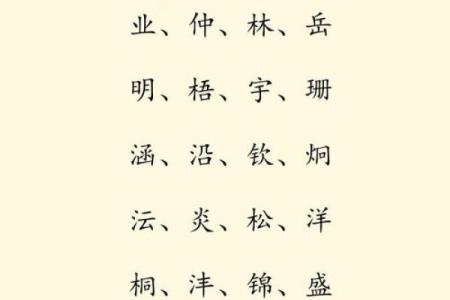 业、仲、林、岳
明、梧、宇、珊
涵、沿、钦、炯
沄、炎、松、洋
桐、沣、锦、盛